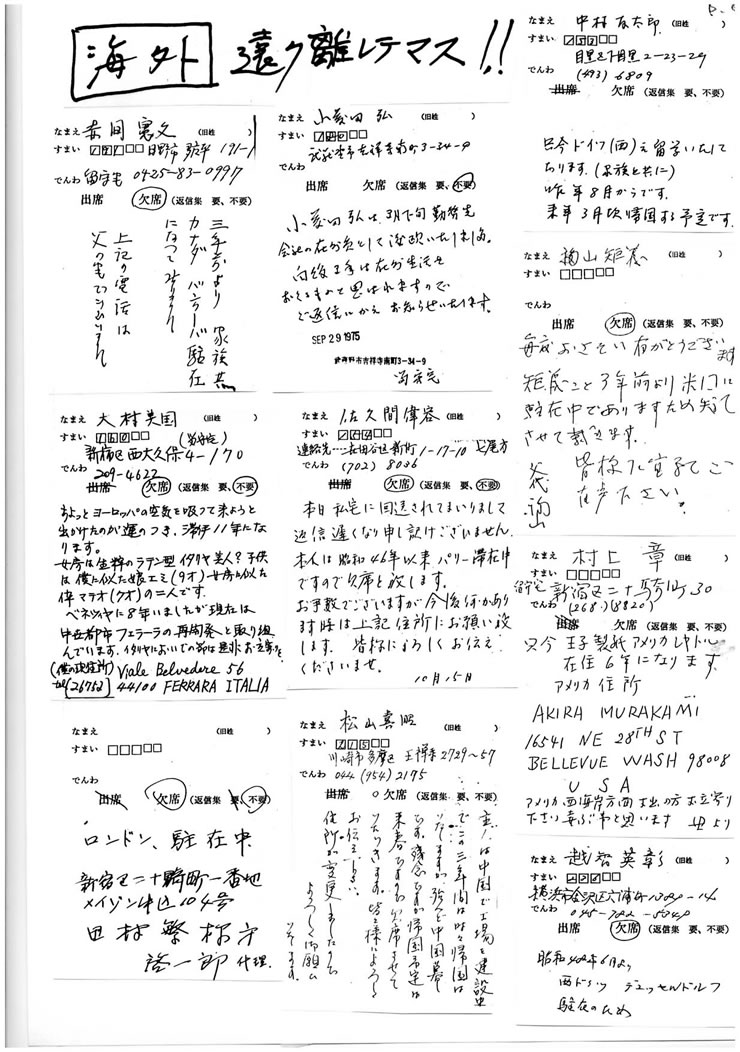 海外 遠ク離レテマス!!
なまえ 中村友太郎 (旧姓 )
すまい
目黒区下目黒2-23-29
でんわ (493) 6809
出席 欠席 (返信集 要、不要)
只今ドイツ(西)へ留学いたして
おります。(家族と共に)
昨年8月からです。
来年3月次帰国する予定です。
なまえ (旧姓
すまい 日野市 191-
でんわ 留守宅 0425-83-0997
出席 欠席 (返信集 要、不要)
三年前より 家族共
カナダ バンクーバー駐在
になって
上記の電話は
父の宅
なまえ 小菱田 弘 (旧姓 )
すまい
武蔵野市吉祥寺南町3-34-9
でんわ
出席 欠席 (返信集 要、不要)
小菱田弘は、3月下旬勤務先
会社の在外員として渡欧いたしました。
向後 は在外生活を
おくるものと思われますので
ご返信いかえ お知らせいたします。
SEP 29 1975
武蔵野市吉祥寺南町3-34-9
なまえ (旧姓 )
すまい
でんわ
出席 欠席 (返信集 要、不要)
毎度 有がとうござい
ます
こと3年前より 米国に
駐在中でありますため
させて戴きます。
皆様に宜しくご
なまえ 大村英国 (旧姓 )
すまい 160 (留守宅)
新宿区西大久保4-170
でんわ 209-4622
出席 欠席 (返信集 要、不要)
ちょっとヨーロッパの空気を吸って来ようと
出かけたのが運のつき、滞伊11年にな
ります。
女房は生粋のラテン型イタリヤ美人?子供
は僕に似た娘エミ(9才)女房に似た
伜マテオ(7才)の二人です。
ベネツィヤに8年いましたが現在は
中世都市フェラーラの再開発と取り組
んでいます。イタリヤにおいでの節は是非お立寄りを
(僕の現住所) Viale Belvedere 56
tel(26752) 44100 FERRARA ITALIA
なまえ 佐久間偉容 (旧姓 )
すまい
連絡先…世田谷区新町1-17-10 方
でんわ (702) 8036
出席 欠席 (返信集 要、不要)
本日私宅に回送されてまいりまして
返信遅くなり申し訳けございません
本人は昭和46年以来パリー滞在中
ですので欠席と致します。
お手数でございますが今後何かあり
ます時は上記住所にお願い致
します。 皆様によろしくお伝え
くださいませ。
10月15日
なまえ 村上 章 (旧姓 )
すまい
留守宅 新宿区二十騎町30
でんわ (268)(8820)
出席 欠席 (返信集 要、不要)
只今 王子製紙アメリカシヤトル
在住6年になります
アメリカ住所
AKIRA MURAKAMI
16541 NE 28TH ST
BELLEVUE WASH 98008
U S A
アメリカ西海岸方面お出の方お立寄り
下さい 喜ぶ事と思います 母より
なまえ (旧姓 )
すまい
でんわ
出席 欠席 (返信集 要、不要)
ロンドン、駐在中
新宿区二十騎町一番地
メイゾン 104号
田村繁
啓一郎 代理.
なまえ 松山真 (旧姓 )
すまい 215
川崎市多摩区王禅寺2729~57
でんわ 044 (954) 2175
出席 欠席 (返信集 要、不要)
主人は中国で工場を建設中
でこの三年間は 帰国は
中国暮し
です。残念ですが帰国予定は
来春ですので欠席させて
いただきます。皆々様によろしく
お伝え下さい。
住所が変更しましたから
よろしく御願い
なまえ 越智英彰 (旧姓 )
すまい
横浜市金沢区六浦町
でんわ 045-782-5049
出席 欠席 (返信集 要、不要)
西ドイツ デュッセルドルフ
駐在のため